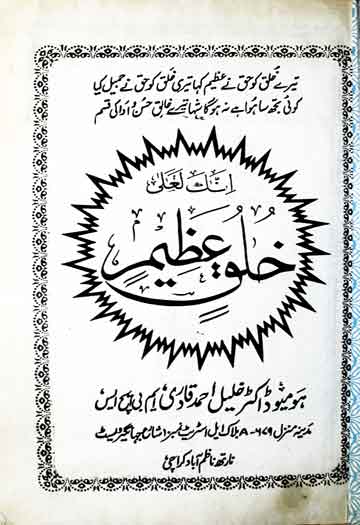 تیرے خُلق کو حق نے عظیم کہا تیری خَلق کو حق نے جمیل کیا
کوئی تجھ سا ہوا ہے نہ ہوگا شہا تیرے خالقِ حسن و ادا کی قسم
اِنَّكَ لَعَلٰی
خُلُقٍ عَظِیْمٍ
ہومیو ڈاکٹر خلیل احمد قادری ایم بی ایچ ایس
مدینہ منزل ۶۷۹-A بلاک ایل اسٹریٹ نمبر ۱ شاہراہ جہانگیر ویسٹ
نارتھ ناظم آباد کراچی